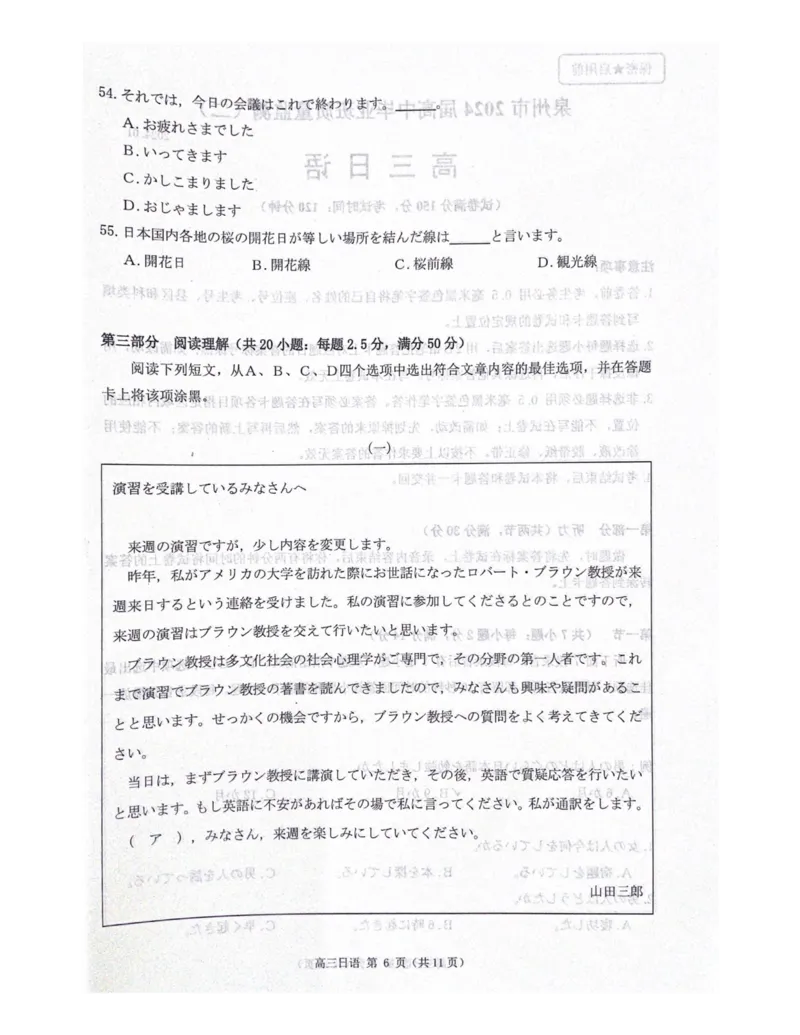 54. それでは，今日の会議はこれで終わります。______。
A. お疲れさまでした
B. いってきます
C. かしこまりました
D. おじゃまします
55. 日本国内各地の桜の開花日が等しい場所を結んだ線は______と言います。
A. 開花日 B. 開花線 C. 桜前線 D. 観光線
第三部分 阅读理解（共 20 小题：每题 2.5 分，满分 50 分）
阅读下列短文，从A、B、C、D四个选项中选出符合文章内容的最佳选项，并在答题
卡上将该项涂黑。
（一）
演習を受講しているみなさんへ
来週の演習ですが，少し内容を変更します。
昨年，私がアメリカの大学を訪れた際にお世話になったロバート・ブラウン教授が来
週来日するという連絡を受けました。私の演習に参加してくださるとのことですので，
来週の演習はブラウン教授を交えて行いたいと思います。
ブラウン教授は多文化社会の社会心理学がご専門で，その分野の第一人者です。これ
まで演習でブラウン教授の著書を読んできましたので，みなさんも興味や疑問があるこ
とと思います。せっかくの機会ですから，ブラウン教授への質問をよく考えてきてくだ
さい。
当日は，まずブラウン教授に講演していただき，その後，英語で質疑応答を行いたい
と思います。もし英語に不安があればその場で私に言ってください。私が通訳をします。
（ ア ），みなさん，来週を楽しみにしていてください。
山田三郎
高三日语 第 6 页（共 11 页）